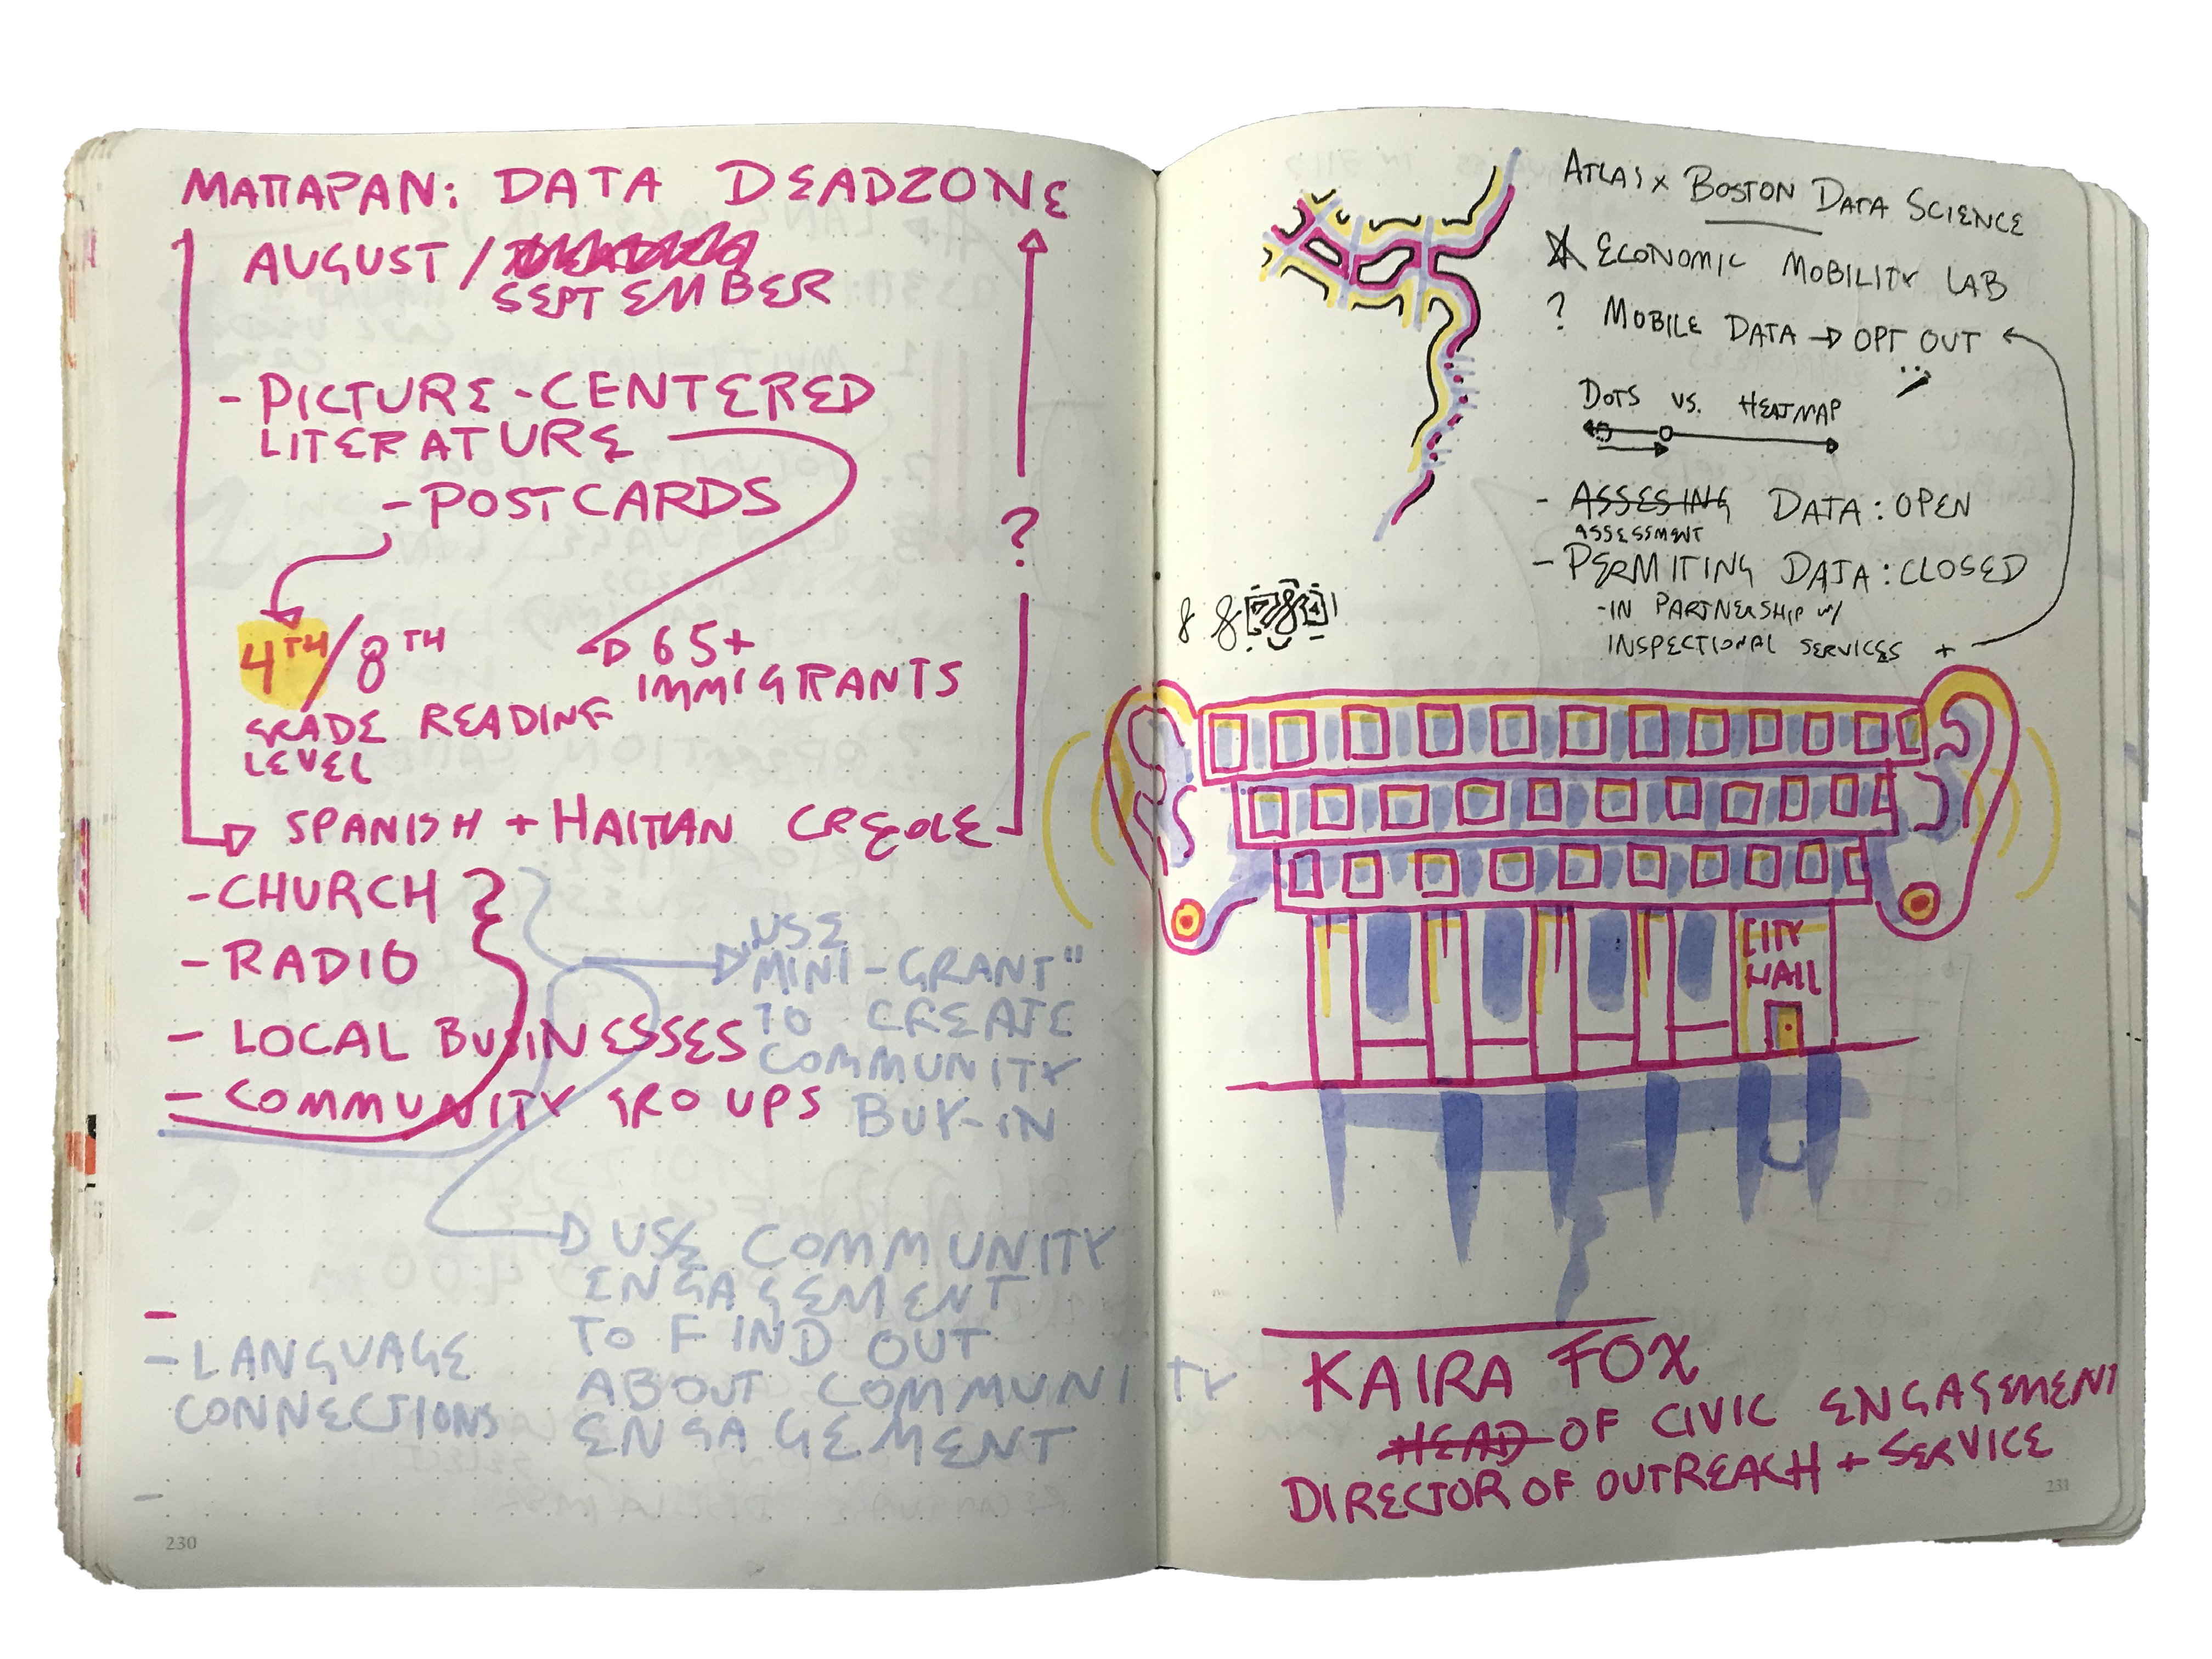 MATTAPAN: DATA DEADZONE
AUGUST /
SEPTEMBER
- PICTURE-CENTERED
LITERATURE
- POSTCARDS
?
4TH/8TH
GRADE READING
LEVEL
65+
IMMIGRANTS
SPANISH + HAITIAN CREOLE
- CHURCH
- RADIO
- LOCAL BUSINESSES
- COMMUNITY GROUPS
USE
MINI-GRANT"
TO CREATE
COMMUNITY
BUY-IN
USE COMMUNITY
ENGAGEMENT
TO FIND OUT
ABOUT COMMUNITY
ENGAGEMENT
- LANGUAGE
CONNECTIONS
230
ATLAS x BOSTON DATA SCIENCE
ECONOMIC MOBILITY LAB
? MOBILE DATA → OPT OUT
DOTS VS. HEATMAP
- ASSESING DATA: OPEN
ASSESSMENT
- PERMITING DATA: CLOSED
- IN PARTNERSHIP W/
INSPECTIONAL SERVICES +
8 8
CITY
HALL
KAIRA FOX
HEAD OF CIVIC ENGAGEMENT
DIRECTOR OF OUTREACH + SERVICE
231